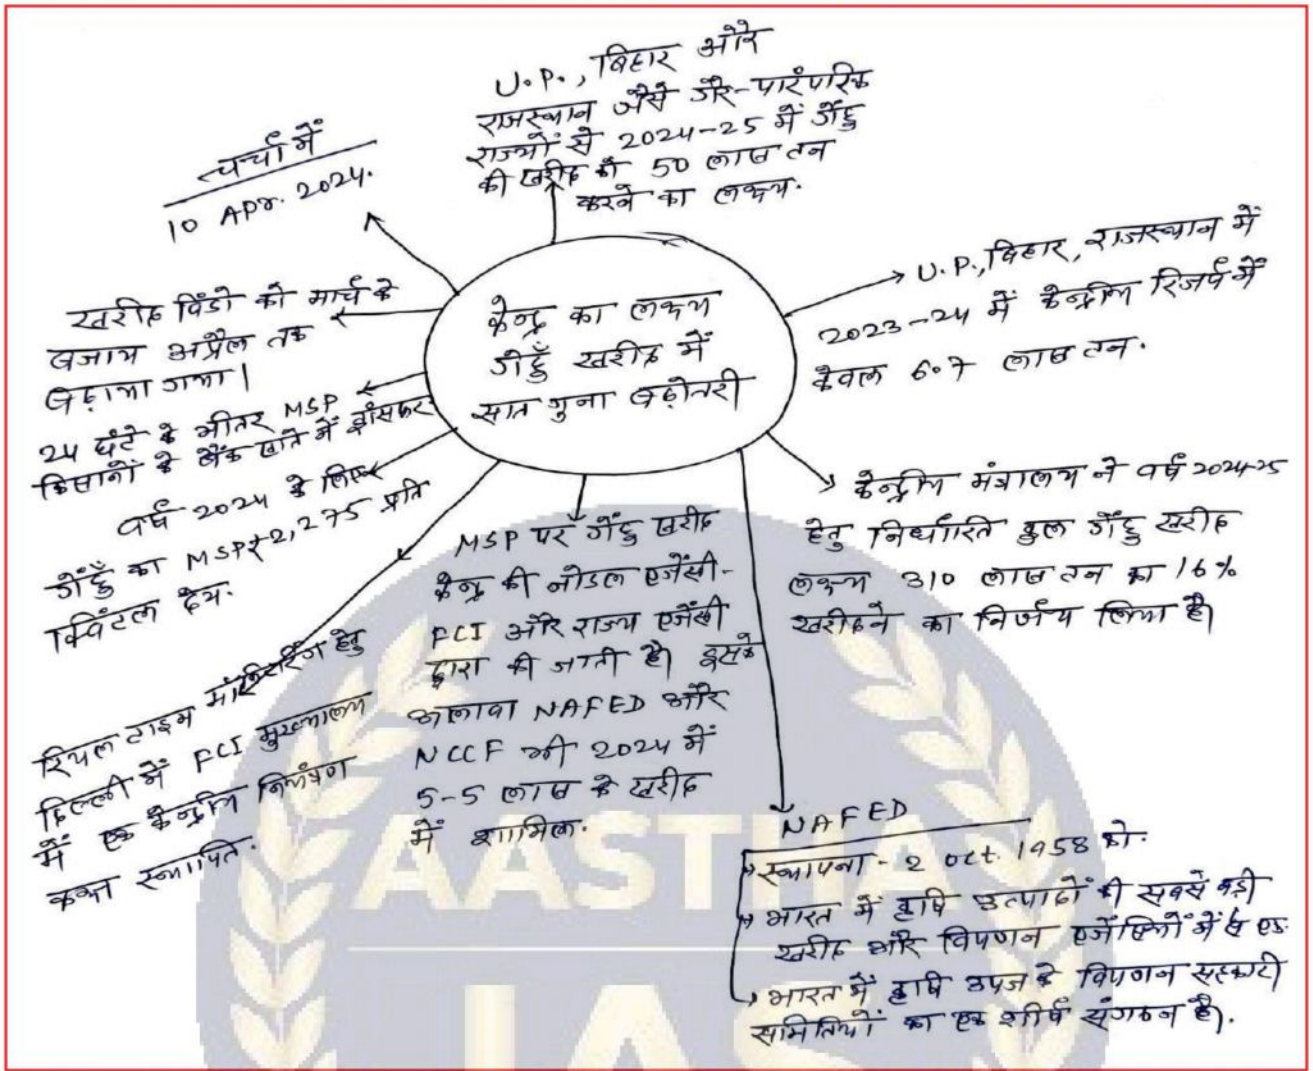 चर्चा में
10 Apr. 2024.
U.P., बिहार और
राजस्थान जैसे गैर-पारंपरिक
राज्यों से 2024-25 में गेंहु
की खरीद को 50 लाख टन
करने का लक्ष्य.
केन्द्र का लक्ष्य
गेहूँ खरीद में
सात गुना बढ़ोतरी
U.P., बिहार, राजस्थान में
2023-24 में केन्द्रीय रिजर्व में
केवल 6.7 लाख टन.
केन्द्रीय मंत्रालय ने वर्ष 2024-25
हेतु निर्धारित कुल गेंहु खरीद
लक्ष्य 310 लाख टन का 16%
खरीदने का निर्णय लिया है।
खरीद विंडो को मार्च के
बजाय अप्रैल तक
बढ़ाया गया।
24 घंटे के भीतर MSP
किसानों के बैंक खाते में ट्रांसफर
वर्ष 2024 के लिए
गेहूँ का MSP ₹2,275 प्रति
क्विंटल देय.
रियल टाइम मॉनिटरिंग हेतु
दिल्ली में FCI मुख्यालय
में एक केन्द्रीय नियंत्रण
कक्ष स्थापित.
MSP पर गेंहु खरीद
केन्द्र की नोडल एजेंसी-
FCI और राज्य एजेंसी
द्वारा की जाती है। इसके
अलावा NAFED और
NCCF भी 2024 में
5-5 लाख के खरीद
में शामिल.
NAFED
स्थापना - 2 Oct. 1958 को.
भारत में कृषि उत्पादों की सबसे बड़ी
खरीद और विपणन एजेंसियों में से एक.
भारत में कृषि उपज के विपणन सहकारी
समितियों का एक शीर्ष संगठन है।.
AASTHA
IAS